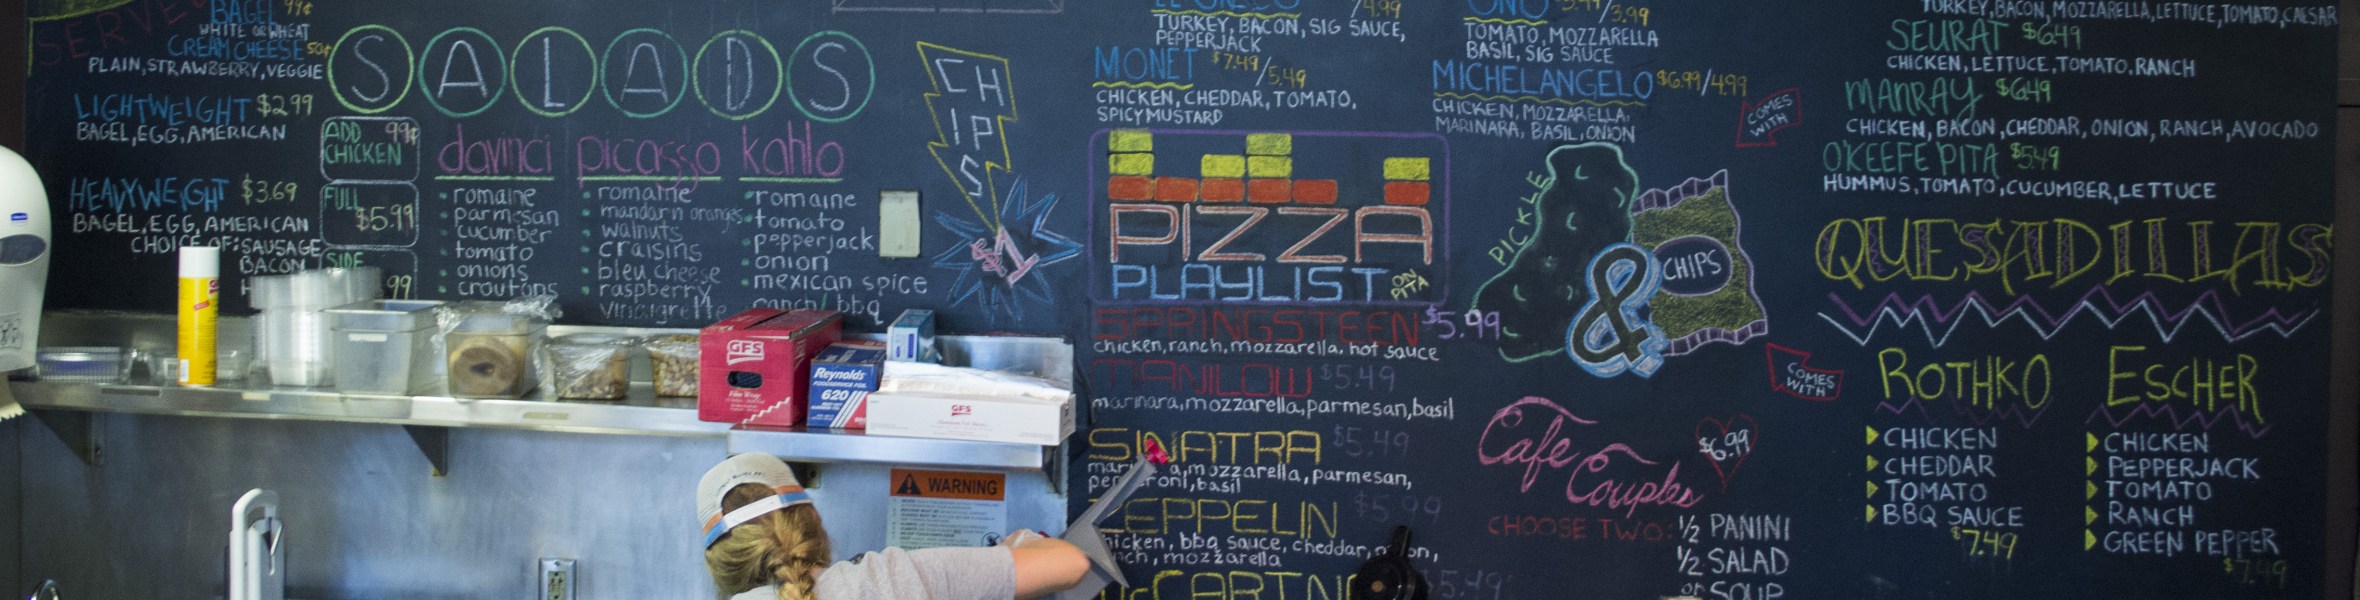 SERVE
BAGEL 99¢
WHITE OR WHEAT
CREAM CHEESE 50¢
PLAIN, STRAWBERRY, VEGGIE
LIGHTWEIGHT $2.99
BAGEL, EGG, AMERICAN
HEAVYWEIGHT $3.69
BAGEL, EGG, AMERICAN
CHOICE OF: SAUSAGE
BACON
SALADS
ADD 99¢
CHICKEN
FULL
$5.99
SIDE
99
davinci
• romaine
• parmesan
• cucumber
• tomato
• onions
• croutons
picasso
• romaine
• mandarin oranges
• walnuts
• craisins
• bleu cheese
• raspberry
vinaigrette
kahlo
• romaine
• tomato
• pepperjack
• onion
• mexican spice
ranch/bbq
CHIPS
$1
4.99
TURKEY, BACON, SIG SAUCE,
PEPPERJACK
MONET $7.49/5.49
CHICKEN, CHEDDAR, TOMATO,
SPICY MUSTARD
PIZZA
PLAYLIST ON PITA
SPRINGSTEEN $5.99
chicken, ranch, mozzarella, hot sauce
MANILOW $5.49
marinara, mozzarella, parmesan, basil
SINATRA $5.49
mari a, mozzarella, parmesan,
pepperoni, basil
ZEPPELIN $5.99
chicken, bbq sauce, cheddar, onion,
ranch, mozzarella
McCARTN $5.49
3.99
TOMATO, MOZZARELLA
BASIL, SIG SAUCE
MICHELANGELO $6.99/4.99
CHICKEN, MOZZARELLA,
MARINARA, BASIL, ONION
COMES
WITH
PICKLE
&
CHIPS
COMES
WITH
Cafe
Couples
$6.99
CHOOSE TWO: 1/2 PANINI
1/2 SALAD
or SOUP
TURKEY, BACON, MOZZARELLA, LETTUCE, TOMATO, CAESAR
SEURAT $6.49
CHICKEN, LETTUCE, TOMATO, RANCH
MANRAY $6.49
CHICKEN, BACON, CHEDDAR, ONION, RANCH, AVOCADO
O'KEEFE PITA $5.49
HUMMUS, TOMATO, CUCUMBER, LETTUCE
QUESADILLAS
ROTHKO
CHICKEN
CHEDDAR
TOMATO
BBQ SAUCE
$7.49
ESCHER
CHICKEN
PEPPERJACK
TOMATO
RANCH
GREEN PEPPER
$7.49
GFS
Film Wrap
Reynolds
FOODSERVICE FOIL
620
GFS
WARNING